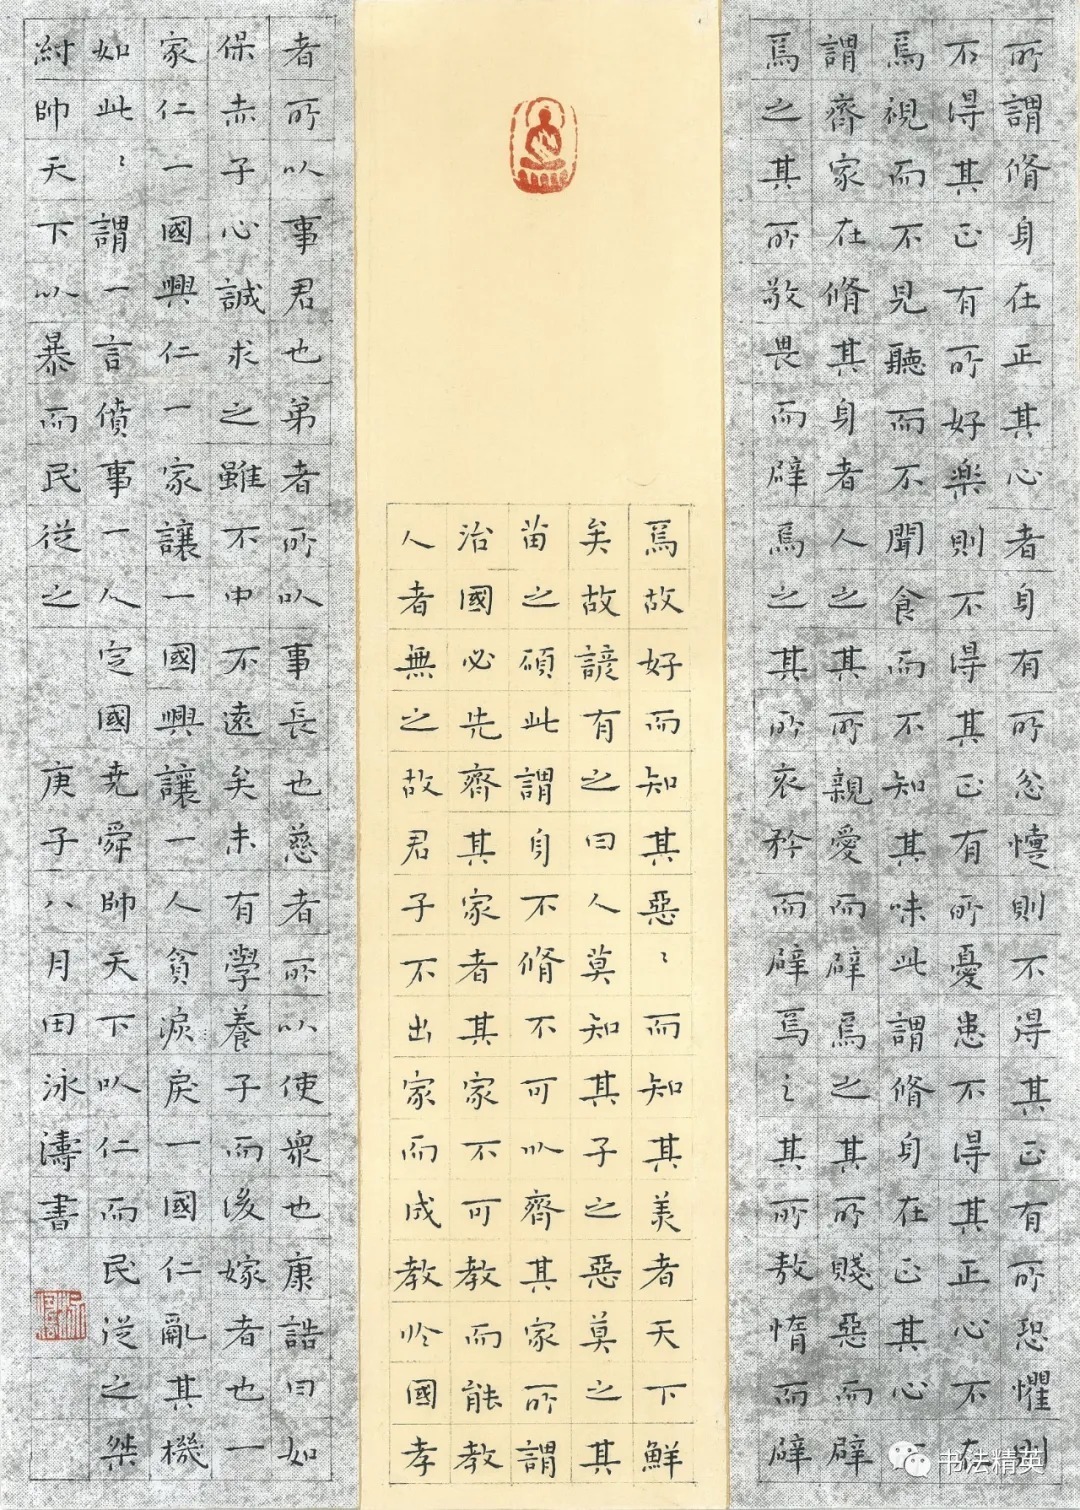 所謂脩身在正其心者身有所忿懥則不得其正有所恐懼則
不得其正有所好樂則不得其正有所憂患不得其正心不在
焉視而不見聽而不聞食而不知其味此謂脩身在正其心
謂齊家在脩其身者人之其所親愛而辟焉之其所賤惡而辟
焉之其所敬畏而辟焉之其所哀矜而辟焉之其所敖惰而辟
焉故好而知其惡〻而知其美者天下鮮
矣故諺有之曰人莫知其子之惡莫之其
苗之碩此謂身不脩不可以齊其家所謂
治國必先齊其家者其家不可教而能教
人者無之故君子不出家而成教於國孝
者所以事君也弟者所以事長也慈者所以使衆也康誥曰如
保赤子心誠求之雖不中不遠矣未有學養子而後嫁者也一
家仁一國興仁一家讓一國興讓一人貪淚戾一國仁亂其機
如此〻謂一言僨事一人定國堯舜帥天下以仁而民從之桀
紂帥天下以暴而民從之 庚子八月田泳濤書
书法精英